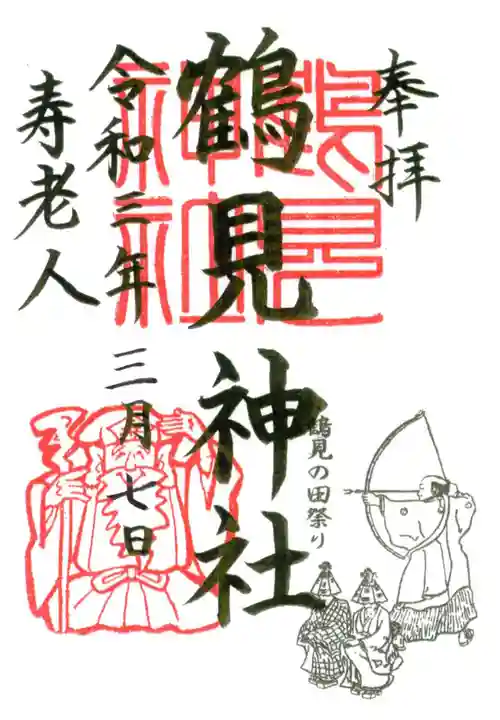 奉拝
鶴見神社
令和三年三月七日
寿老人
鶴見の田祭り